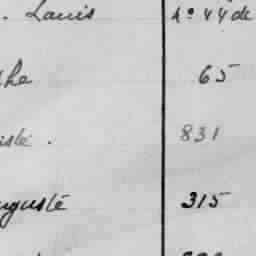 . Louis n° 44 de
the 65
iste . 831
uguste 315